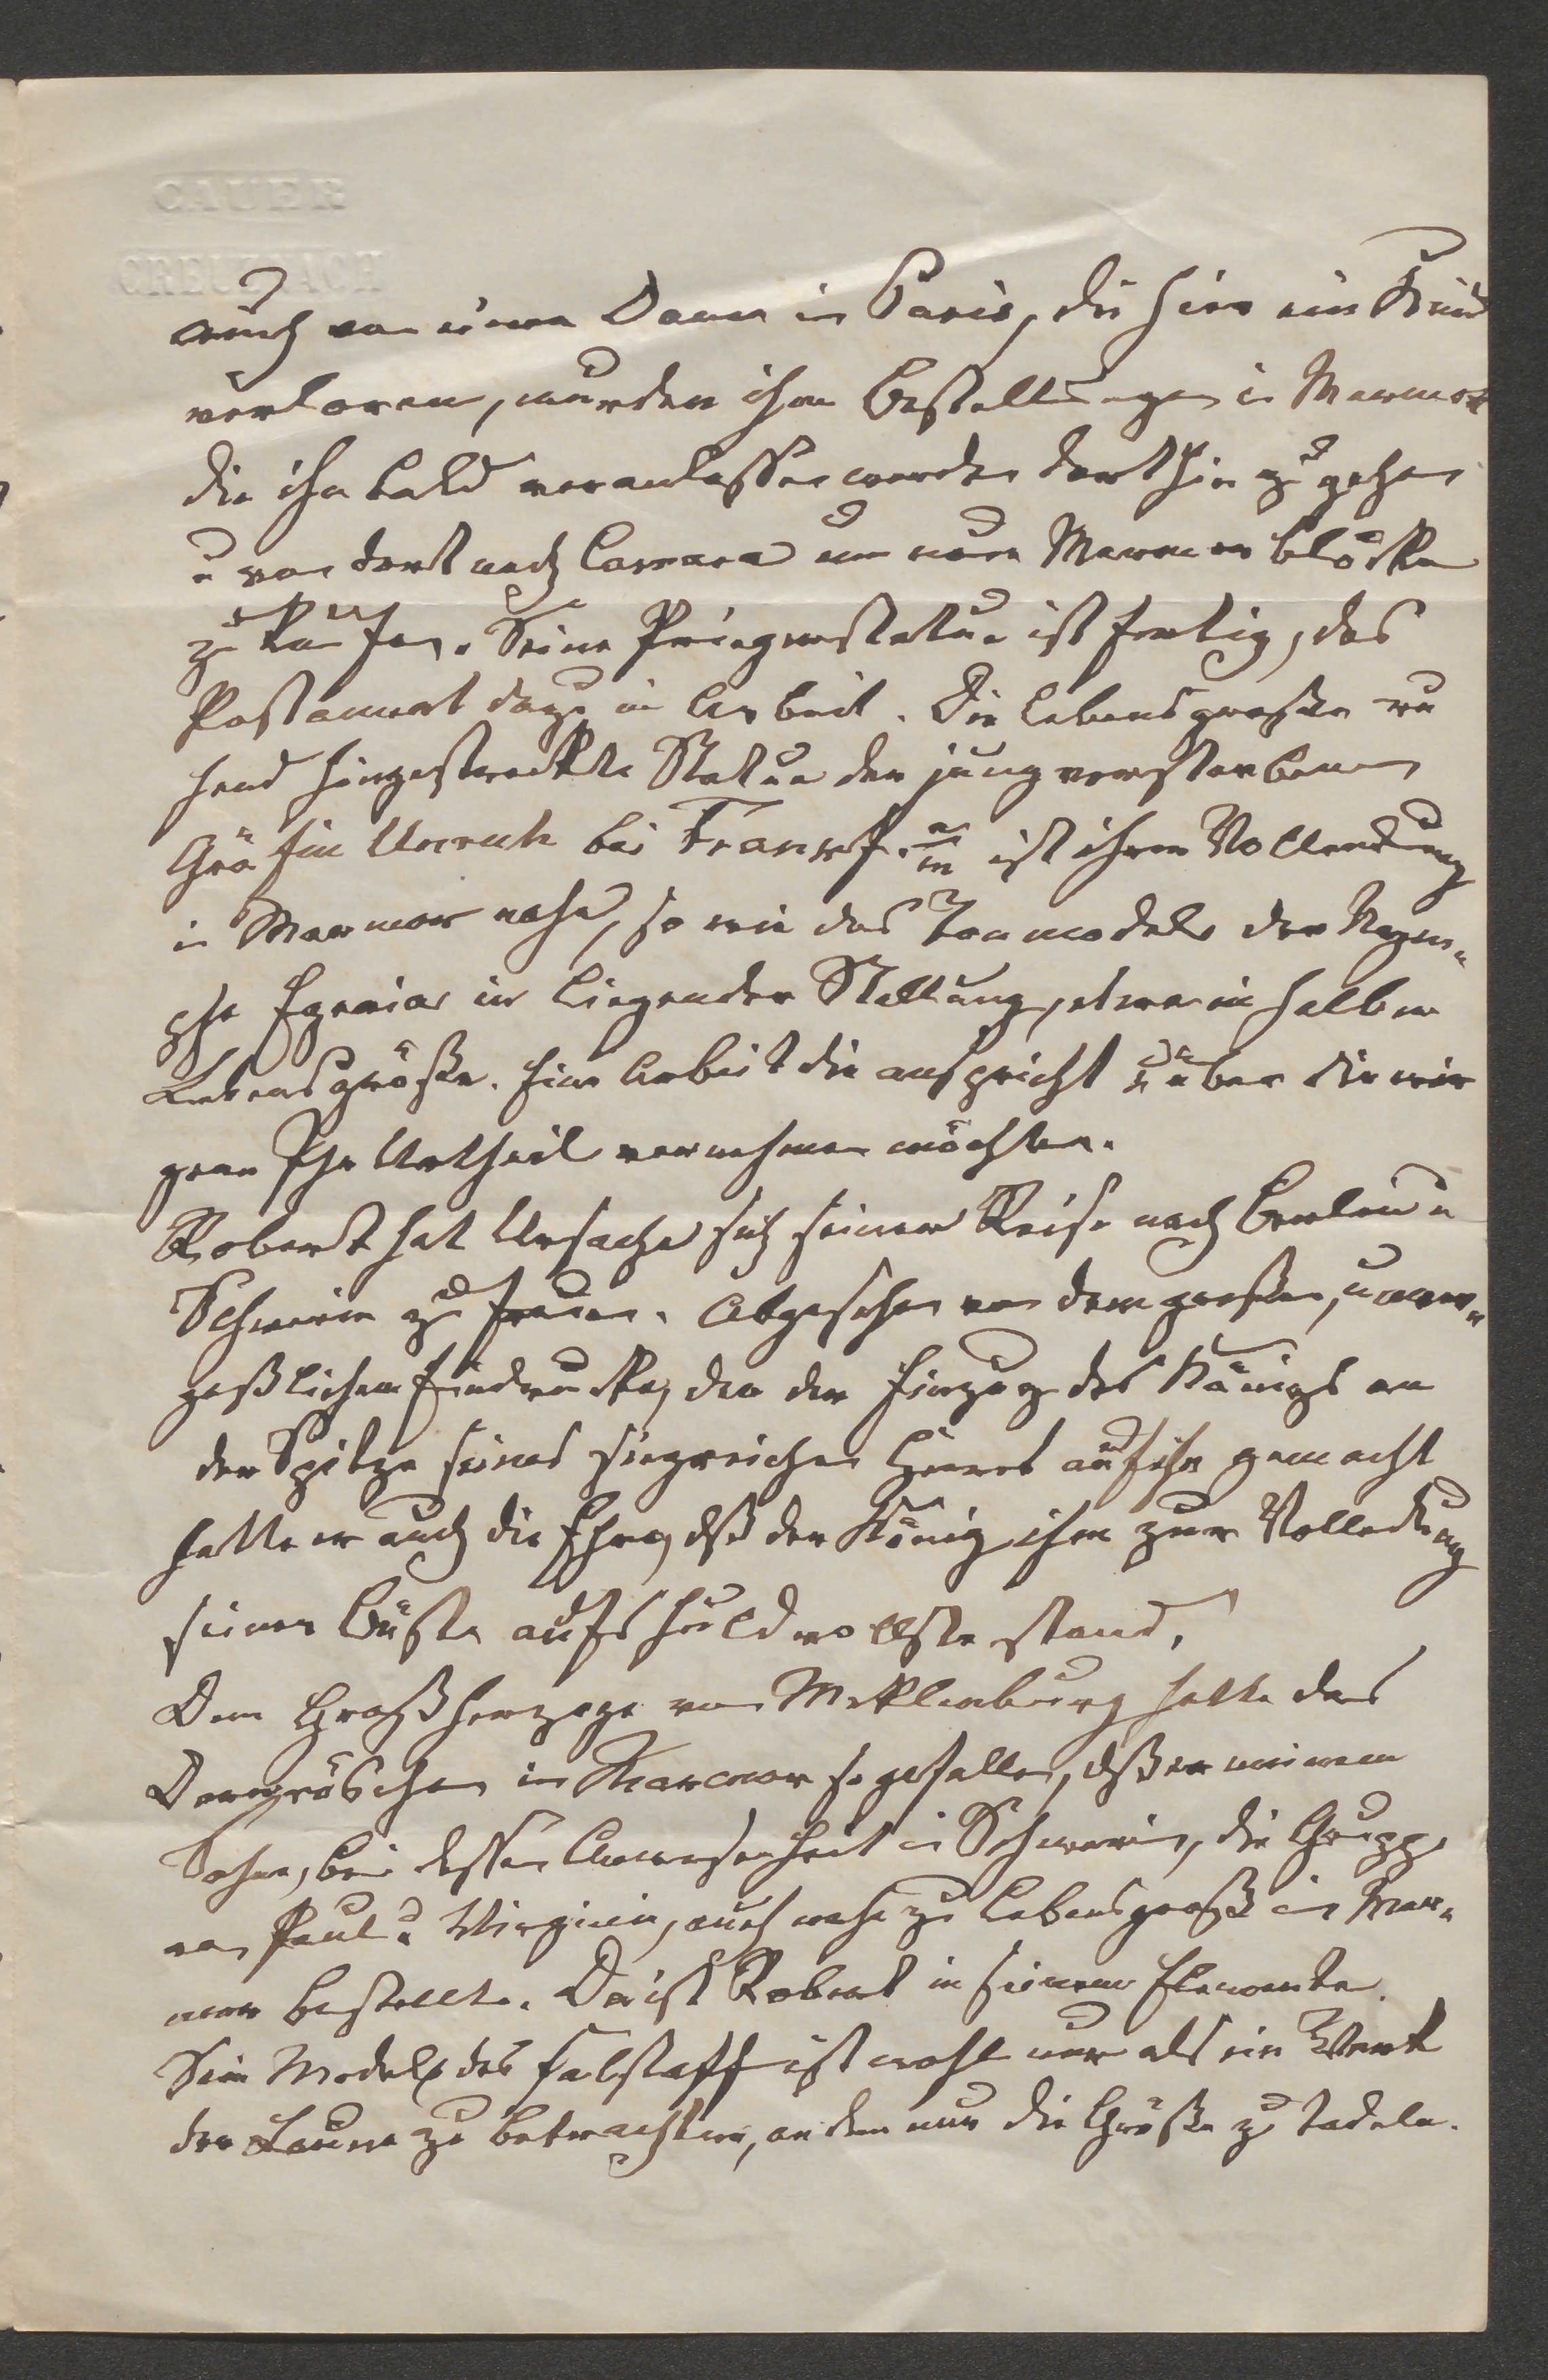 CAUER
CREUZNACH
auch von einer Dame in Paris, die hier ein Kind
verloren, wurden ihm Bestellungen in Marmor
die ihn bald veranlassen werden dorthin zu gehen
u von dort nach Carrara um neue Marmorblöcke
zu kaufen. Seine Kriegerstatue ist fertig, das
Postament dazu in Arbeit. Die lebensgroße ru
hend hingestreckte Statue der jung verstorbenen
Gräfin Unruh bei Frankf. a/m ist ihrer Vollendung
in Marmor nahe, so wie das Tonmodell der Nym-
phe Egeria in liegender Stellung, etwa in halber
Lebensgröße. Eine Arbeit die anspricht u über die wir
gern Ihr Urtheil vernehmen möchten.
Robert hat Ursache sich seiner Reise nach Berlin u
Schwerin zu freuen. Abgesehen von dem großen, unver-
geßlichen Eindrucke, den der Einzug des Königs an
der Spitze seines siegreichen Heeres auf ihn gemacht
hatte er auch die Ehre, dß der König ihm zur Vollendung
seiner Büste aufs huldvollste stand.
Dem Großherzoge von Meklenburg hatte das
Dornröschen in Marmor so gefallen, dß er meinem
Sohne, bei dessen Anwesenheit in Schwerin, die Gruppe
von Paul u Virginie, auch nahe zu lebensgroß in Mar-
mor bestellte. Da ist Robert in seinem Elemente.
Sein Modell des Falstaff ist wohl nur als ein Werk
der Laune zu betrachten, an dem nur die Größe zu tadeln.